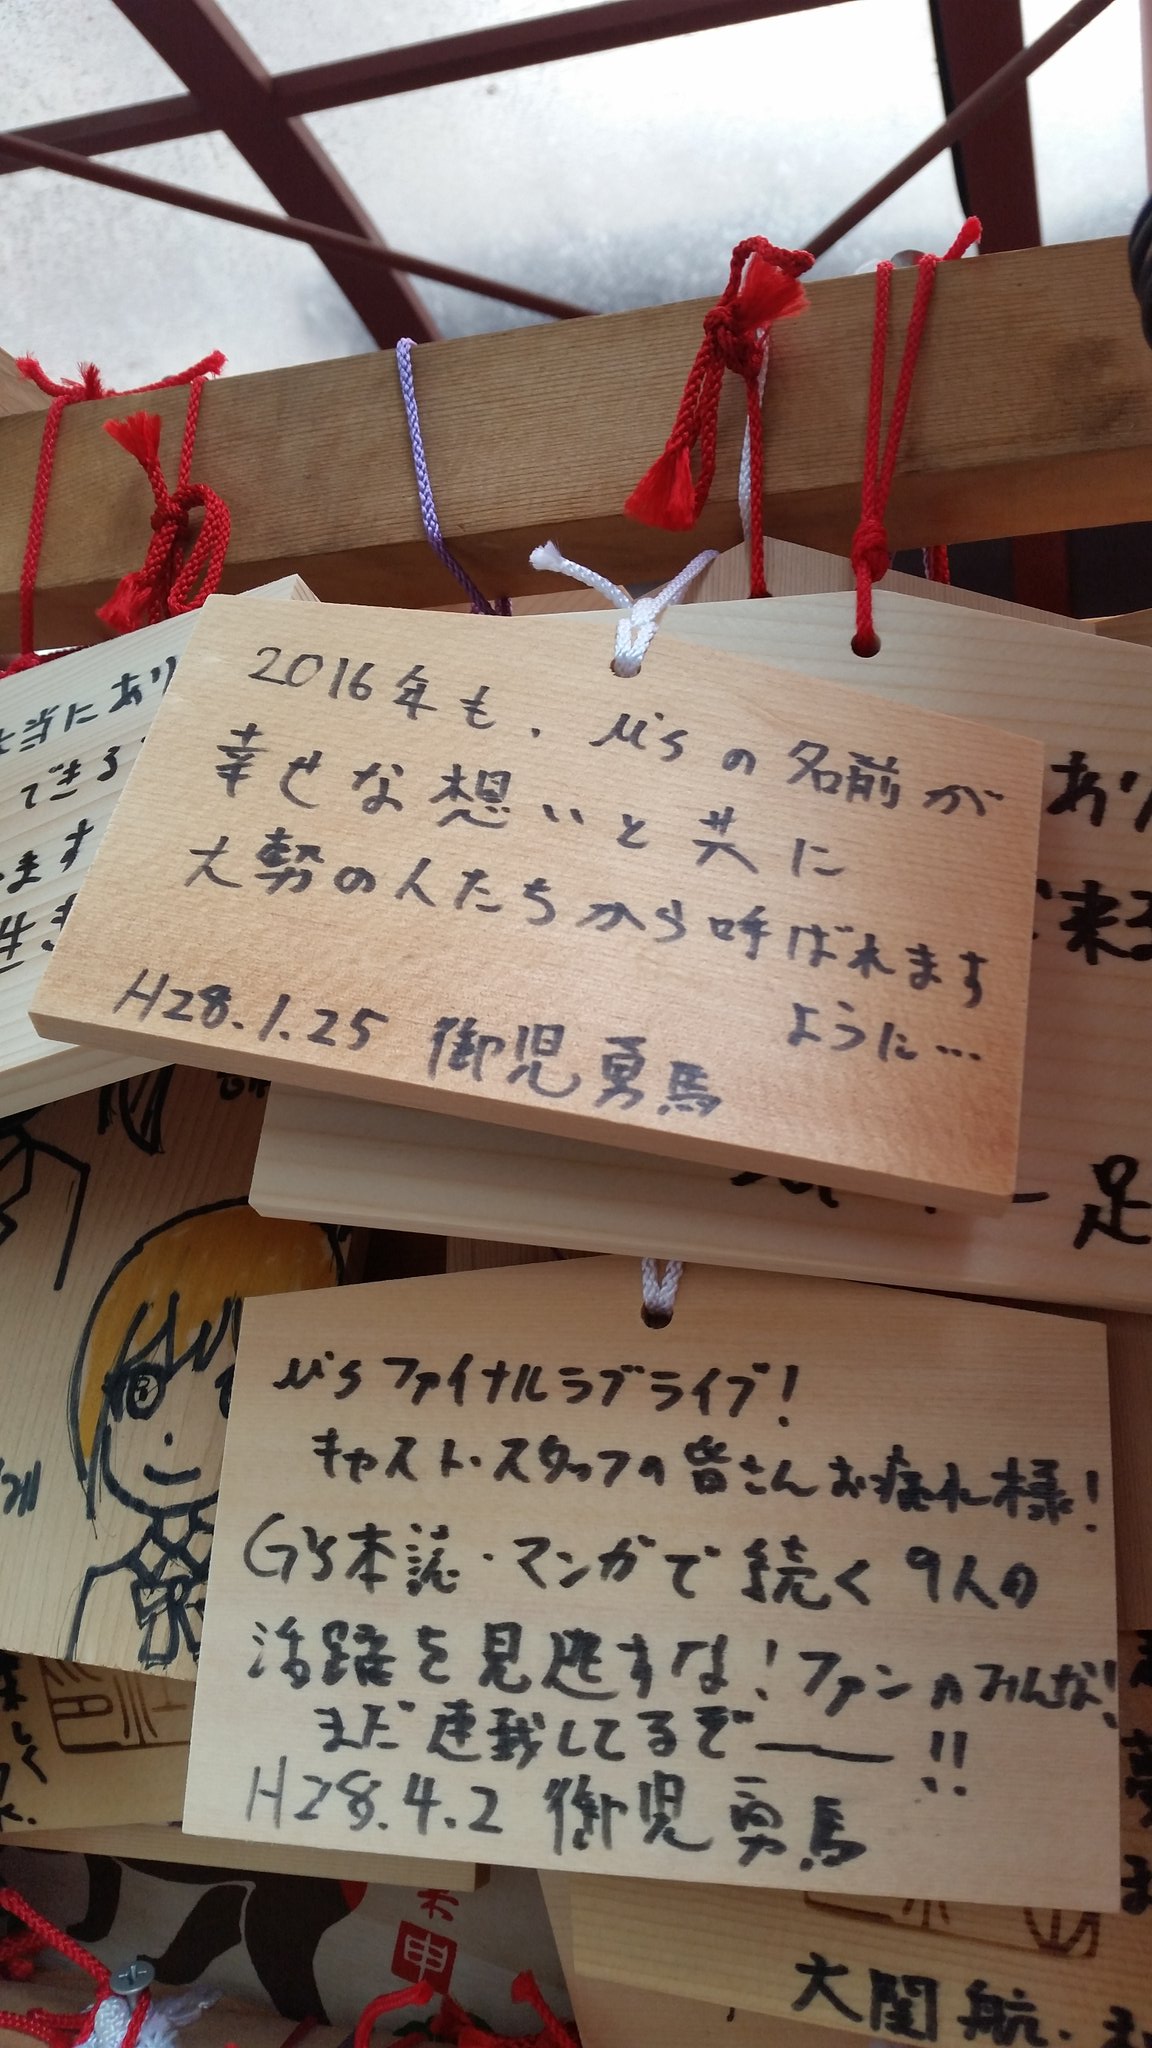 2016年も、μ'sの名前が
幸せな想いと共に
大勢の人たちから呼ばれます
ように…
H28.1.25 御児 勇馬
μ'sファイナルラブライブ!
キャスト・スタッフの皆さんお疲れ様!
G's本誌・マンガで続く9人の
活躍を見逃すな!ファンのみんな!
まだ連載してるぞ――!!
H28.4.2 御児 勇馬
当にあり
できる
ます
あり
来る
足
申
大関 航